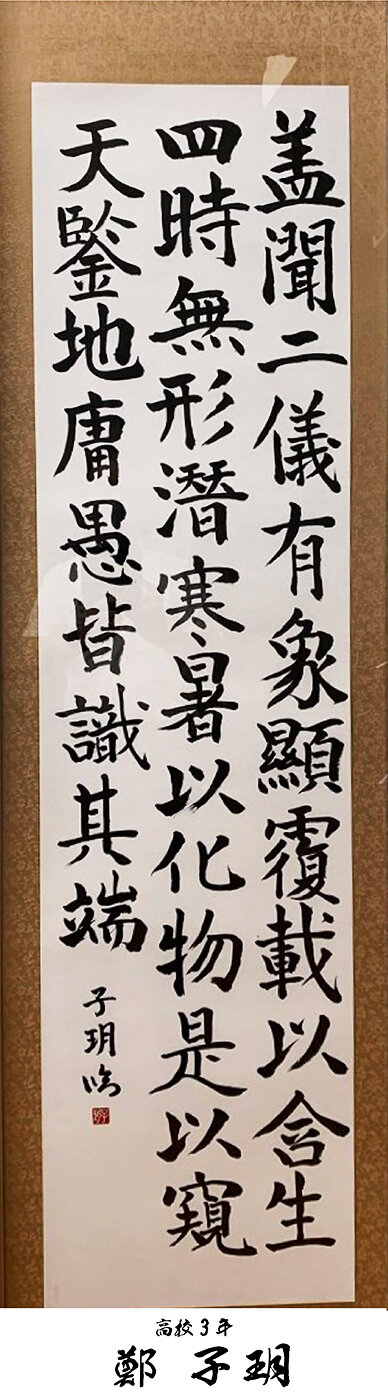 盖聞二儀有象顯覆載以含生
四時無形潛寒暑以化物是以窺
天鑒地庸愚皆識其端
子玥臨
高校3年
鄭 子玥